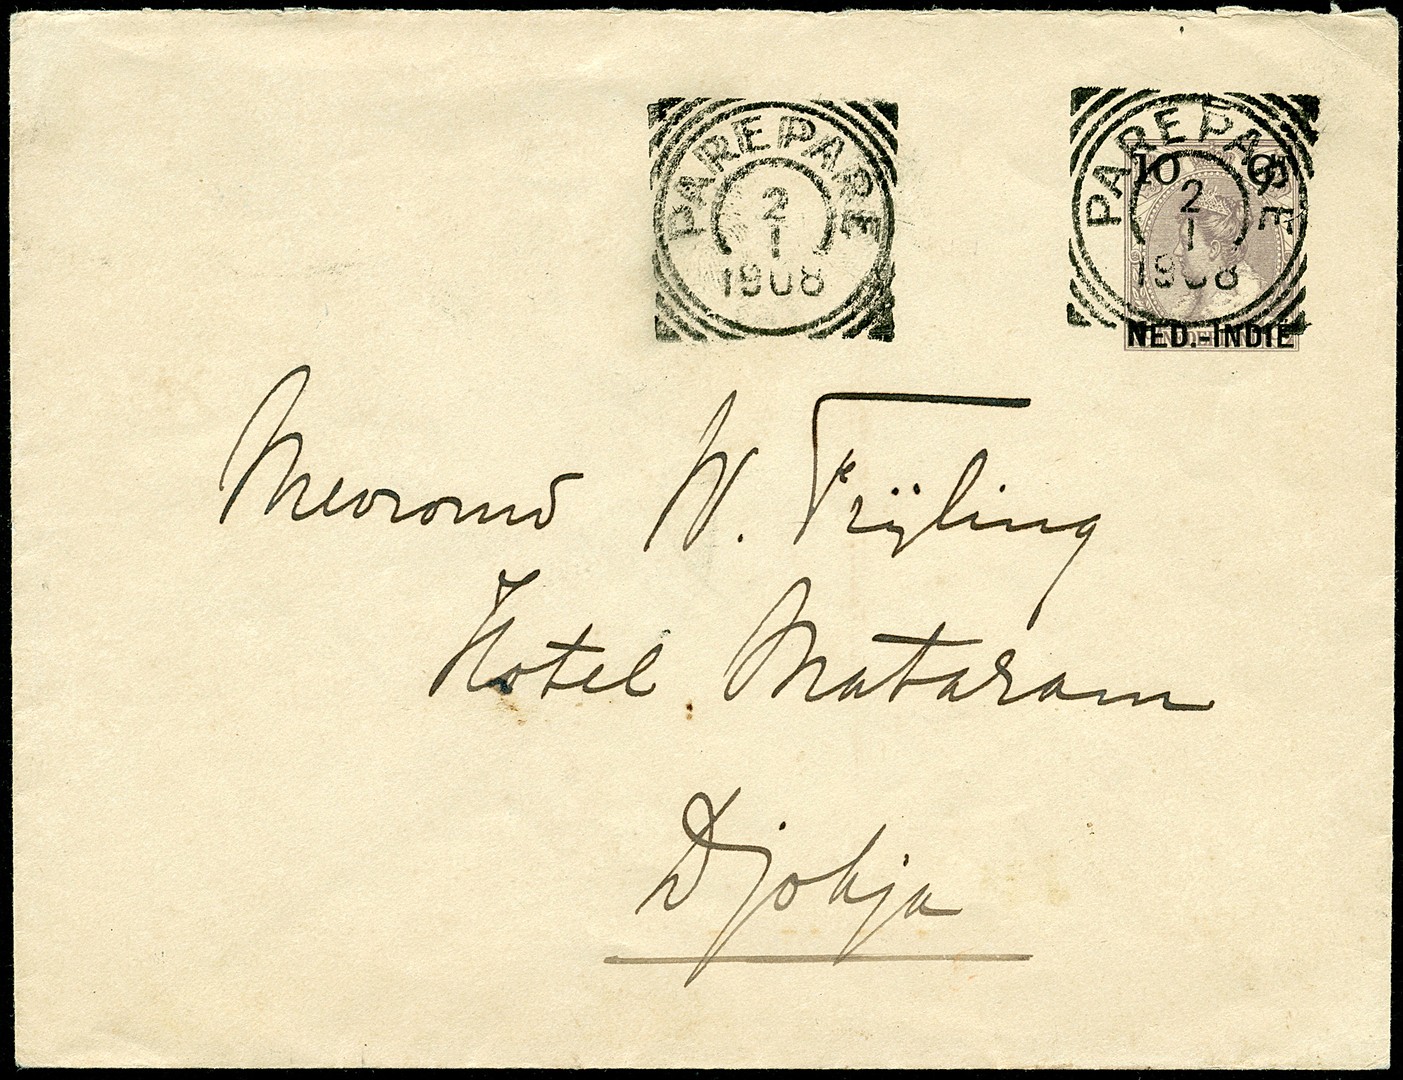 PAREPARE
2
1
1908
PAREPARE
2
1
1908
10 Ct
NED.-INDIË
Mevrouw W. Frijling
Hotel Mataram
Djokja